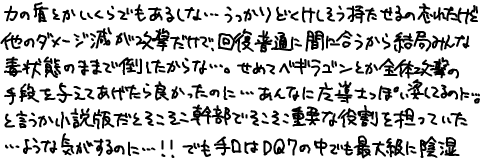 力の盾とかいくらでもあるしな… うっかりどくけしそう持たせるの忘れたけど
他のダメージ減が攻撃だけで、回復普通に間に合うから結局みんな
毒状態のままで倒したからな…。せめてベギラゴンとか全体攻撃の
手段を与えてあげたら良かったのに…あんなに魔導士っぽい姿してるのに…。
と言うか小説版だとそこそこ幹部でそこそこ重要な役割を担っていた
…ような気がするのに…!! でも手口はDQ7の中でも最大級に陰湿